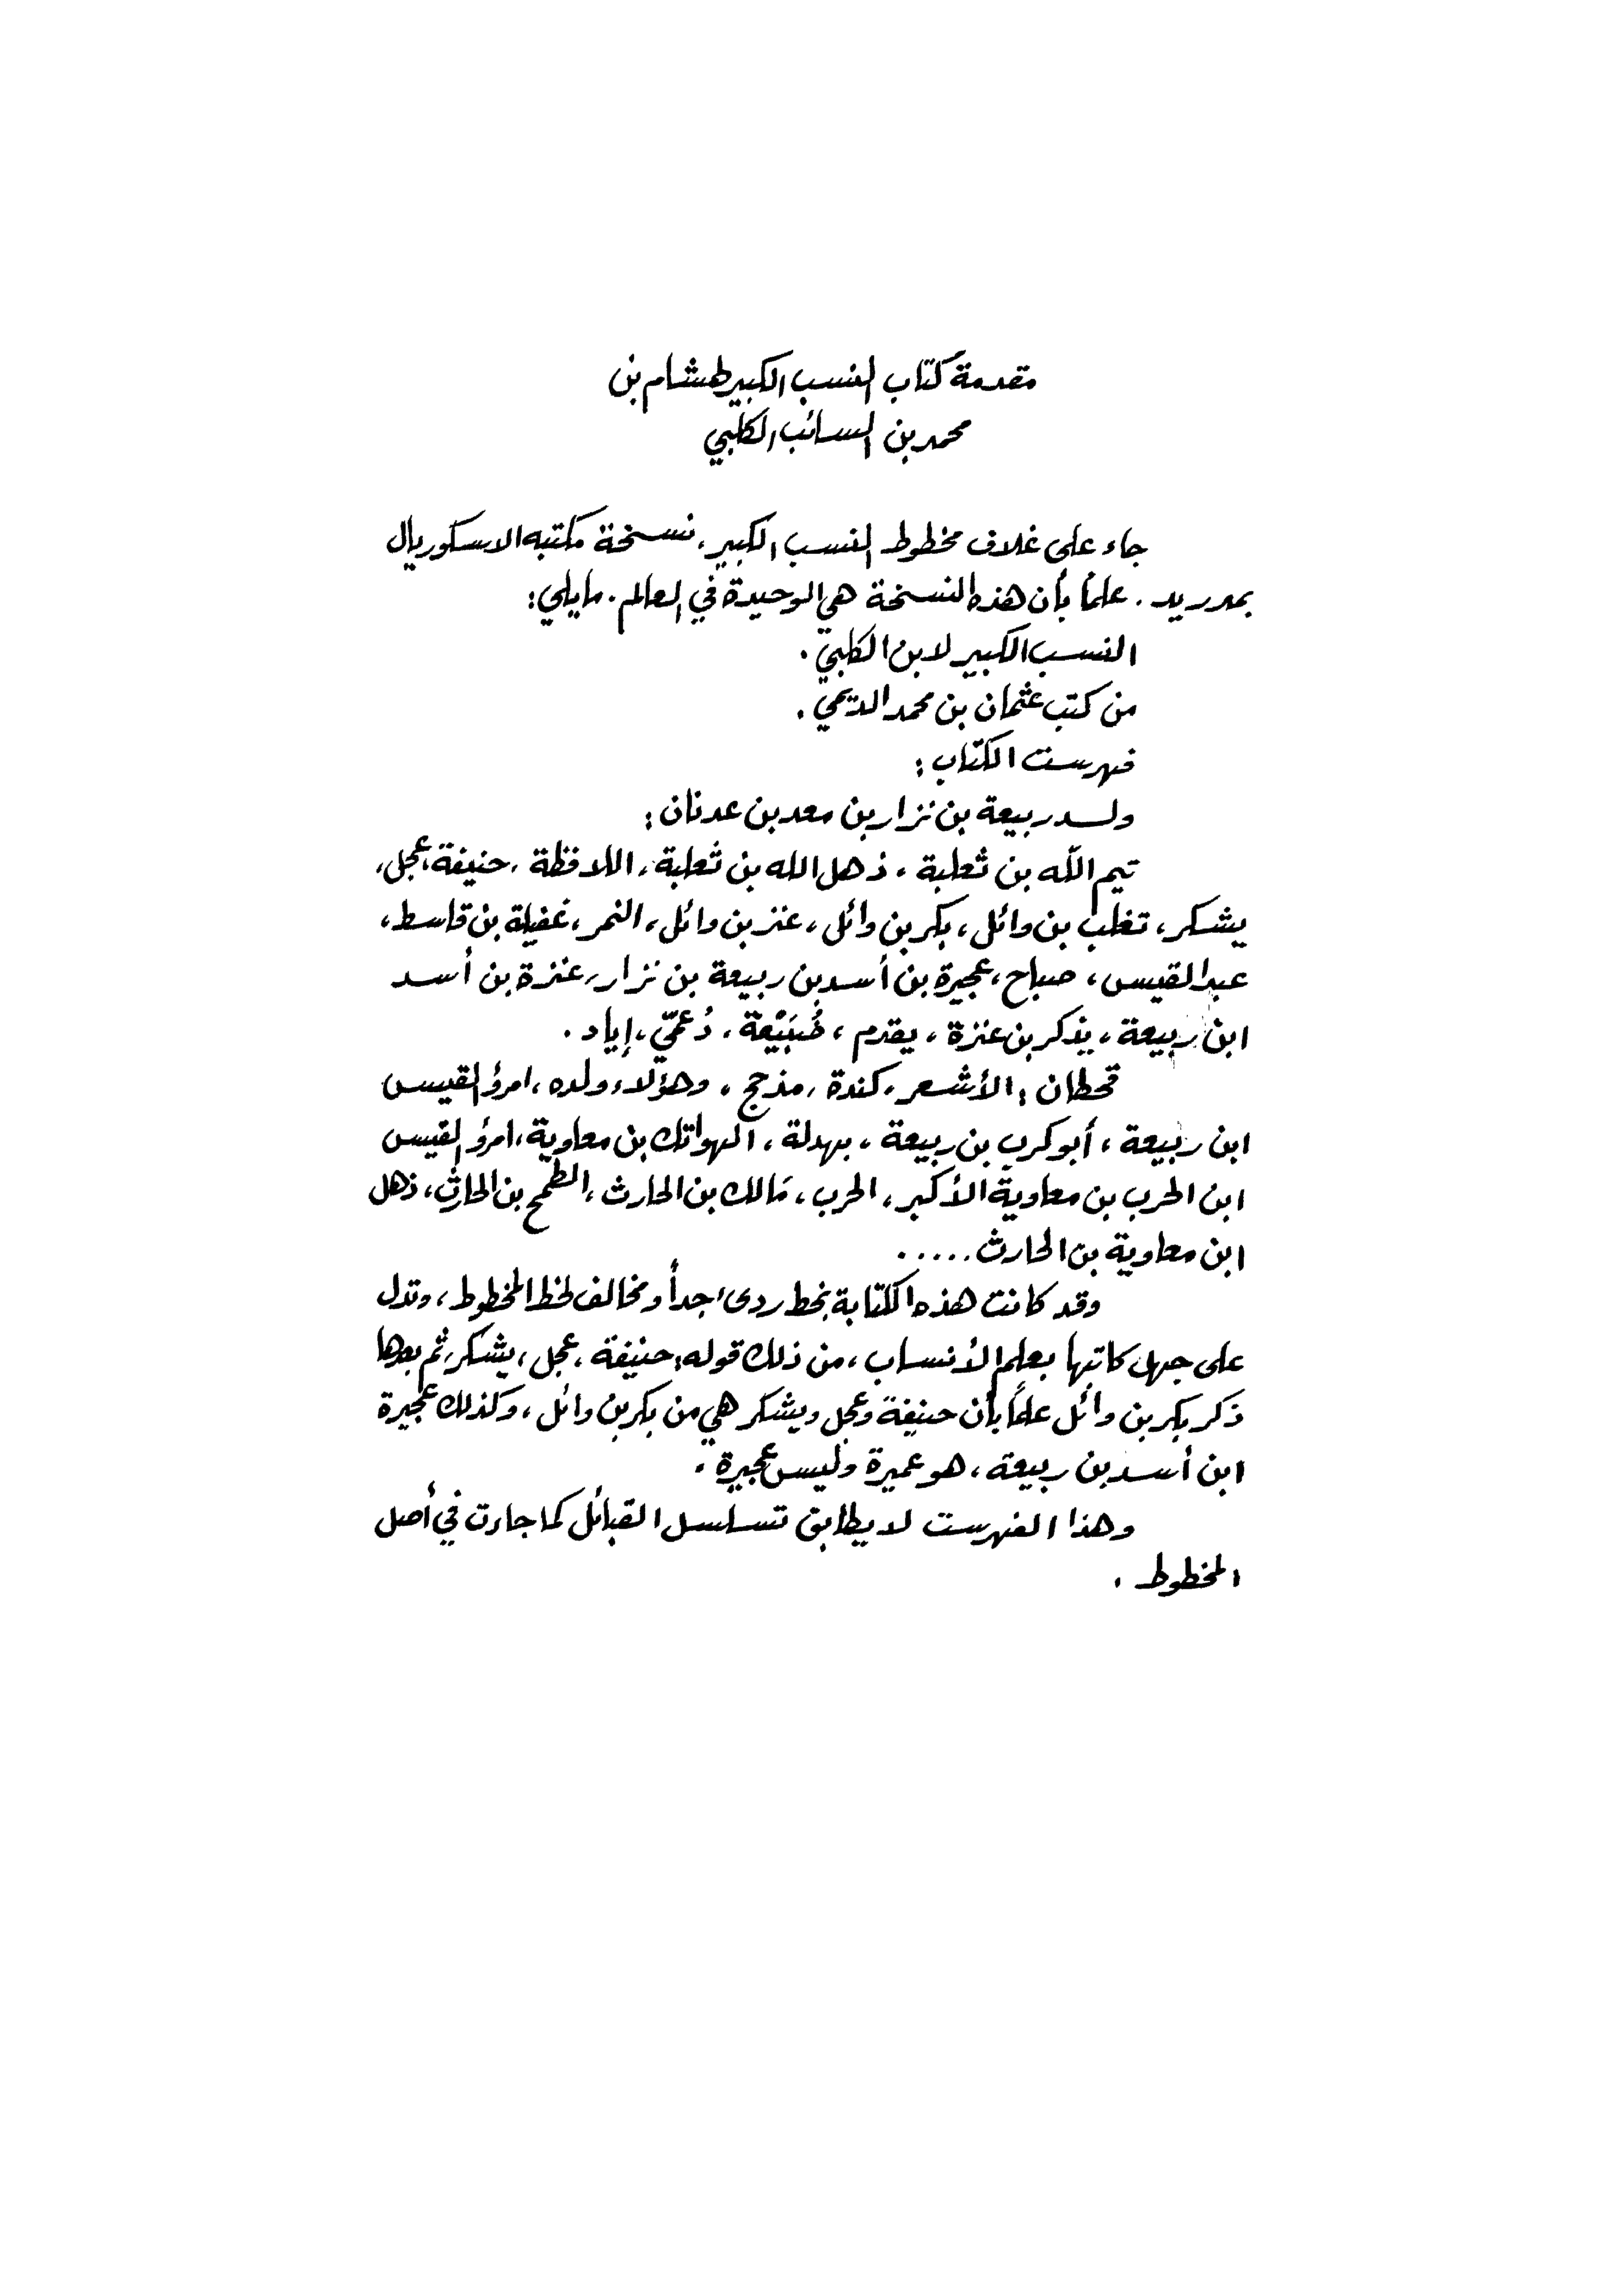 مقدمة كتاب النسب الكبير لهشام بن
محمد بن السائب الكلبي
جاء على غلاف مخطوط النسب الكبير، نسخة مكتبه الاسكوريال
بمدريد . علماً بأن هذه النسخة هي الوحيدة في العالم . مايلي :
النسب الكبير لابن الكلبي .
من كتب عثمان بن محمد الديمي .
فهرست الكتاب :
ولد ربيعة بن نزار بن معد بن عدنان :
تيم الله بن ثعلبة ، ذهل الله بن ثعلبة ، اللافظة ، حنيفة ، عجل ،
يشكر ، تغلب بن وائل ، بكر بن وائل ، عنز بن وائل ، النمر ، غفيلة بن قاسط ،
عبد القيس ، صباح ، عجيرة بن أسد بن ربيعة بن نزار ، عنزة بن أسد
ابن ربيعة ، يذكر بن عنزة ، يقدم ، ضُبَيْعة ، دُعميّ ، إياد .
قحطان : الأشعر ، كندة ، مذحج ، وهؤلاء ولده ، امرؤ القيس
ابن ربيعة ، أبو كرب بن ربيعة ، بهدلة ، الهواتك بن معاوية ، امرؤ القيس
ابن الحرب بن معاوية الأكبر ، الحرب ، مالك بن الحارث ، الطمح بن الحارث ، ذهل
ابن معاوية بن الحارث .....
وقد كانت هذه الكتابة بخط ردىء جداً ومخالف لخط المخطوط ، وتدل
على جهل كاتبها بعلم الأنساب ، من ذلك قوله : حنيفة ، عجل ، يشكر ، ثم بعدها
ذكر بكر بن وائل علماً بأن حنيفة وعجل ويشكر هي من بكر بن وائل ، وكذلك عجيرة
ابن أسد بن ربيعة ، هو عميرة وليس عجيرة .
وهذا الفهرست لا يطابق تسلسل القبائل كما جاءت في أصل
المخطوط .